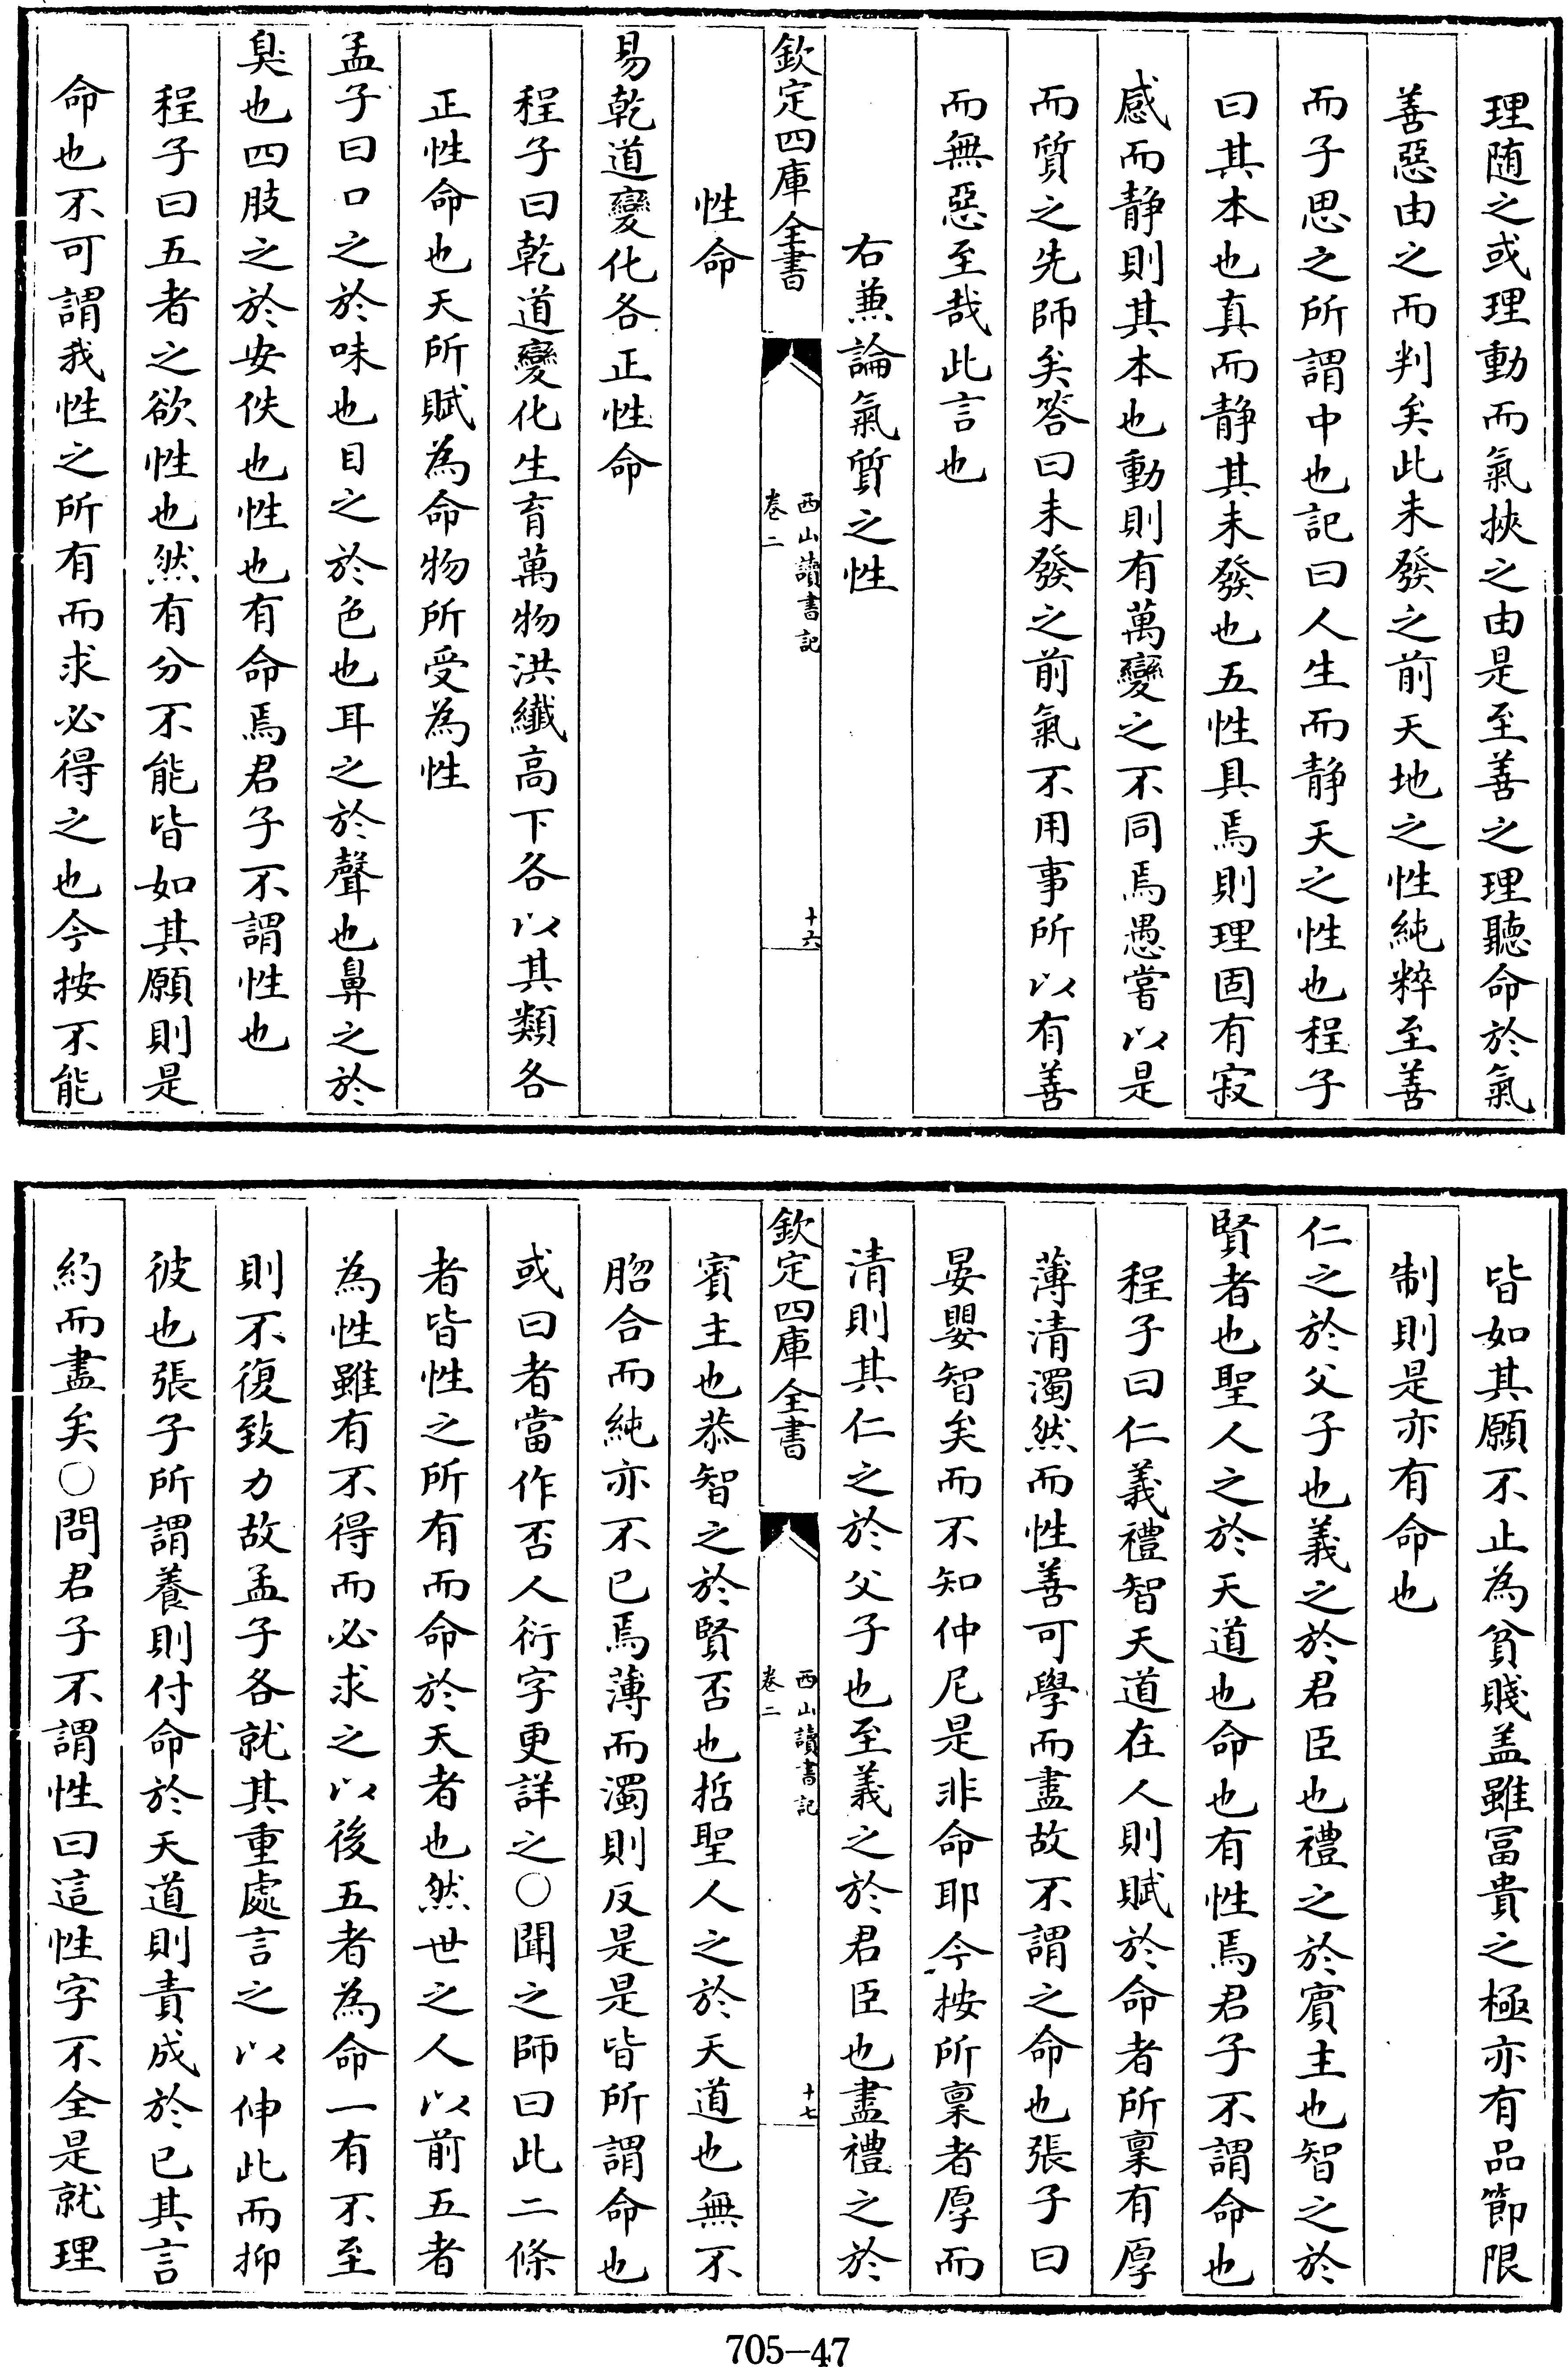 理随之或理動而氣挾之由是至善之理聽命於氣
善惡由之而判矣此未發之前天地之性純粹至善
而子思之所謂中也記曰人生而静天之性也程子
曰其本也真而静其未發也五性具焉則理固有寂
感而静則其本也動則有萬變之不同焉愚嘗以是
而質之先師矣答曰未發之前氣不用事所以有善
而無惡至哉此言也
右兼論氣質之性
欽定四庫全書
西山讀書記
卷二
十六
性命
易乾道變化各正性命
程子曰乾道變化生育萬物洪纖髙下各以其類各
正性命也天所賦為命物所受為性
孟子曰口之於味也目之於色也耳之於聲也鼻之於
臭也四肢之於安佚也性也有命焉君子不謂性也
程子曰五者之欲性也然有分不能皆如其願則是
命也不可謂我性之所有而求必得之也今按不能
皆如其願不止為貧賤盖雖冨貴之極亦有品節限
制則是亦有命也
仁之於父子也義之於君臣也禮之於賓主也智之於
賢者也聖人之於天道也命也有性焉君子不謂命也
程子曰仁義禮智天道在人則賦於命者所稟有厚
薄清濁然而性善可學而盡故不謂之命也張子曰
晏嬰智矣而不知仲尼是非命耶今按所稟者厚而
清則其仁之於父子也至義之於君臣也盡禮之於
欽定四庫全書
西山讀書記
卷二
十七
賓主也恭智之於賢否也哲聖人之於天道也無不
脗合而純亦不已焉薄而濁則反是是皆所謂命也
或曰者當作否人衍字更詳之○聞之師曰此二條
者皆性之所有而命於天者也然世之人以前五者
為性雖有不得而必求之以後五者為命一有不至
則不復致力故孟子各就其重處言之以伸此而抑
彼也張子所謂養則付命於天道則責成於已其言
約而盡矣○問君子不謂性曰這性字不全是就理
705-47